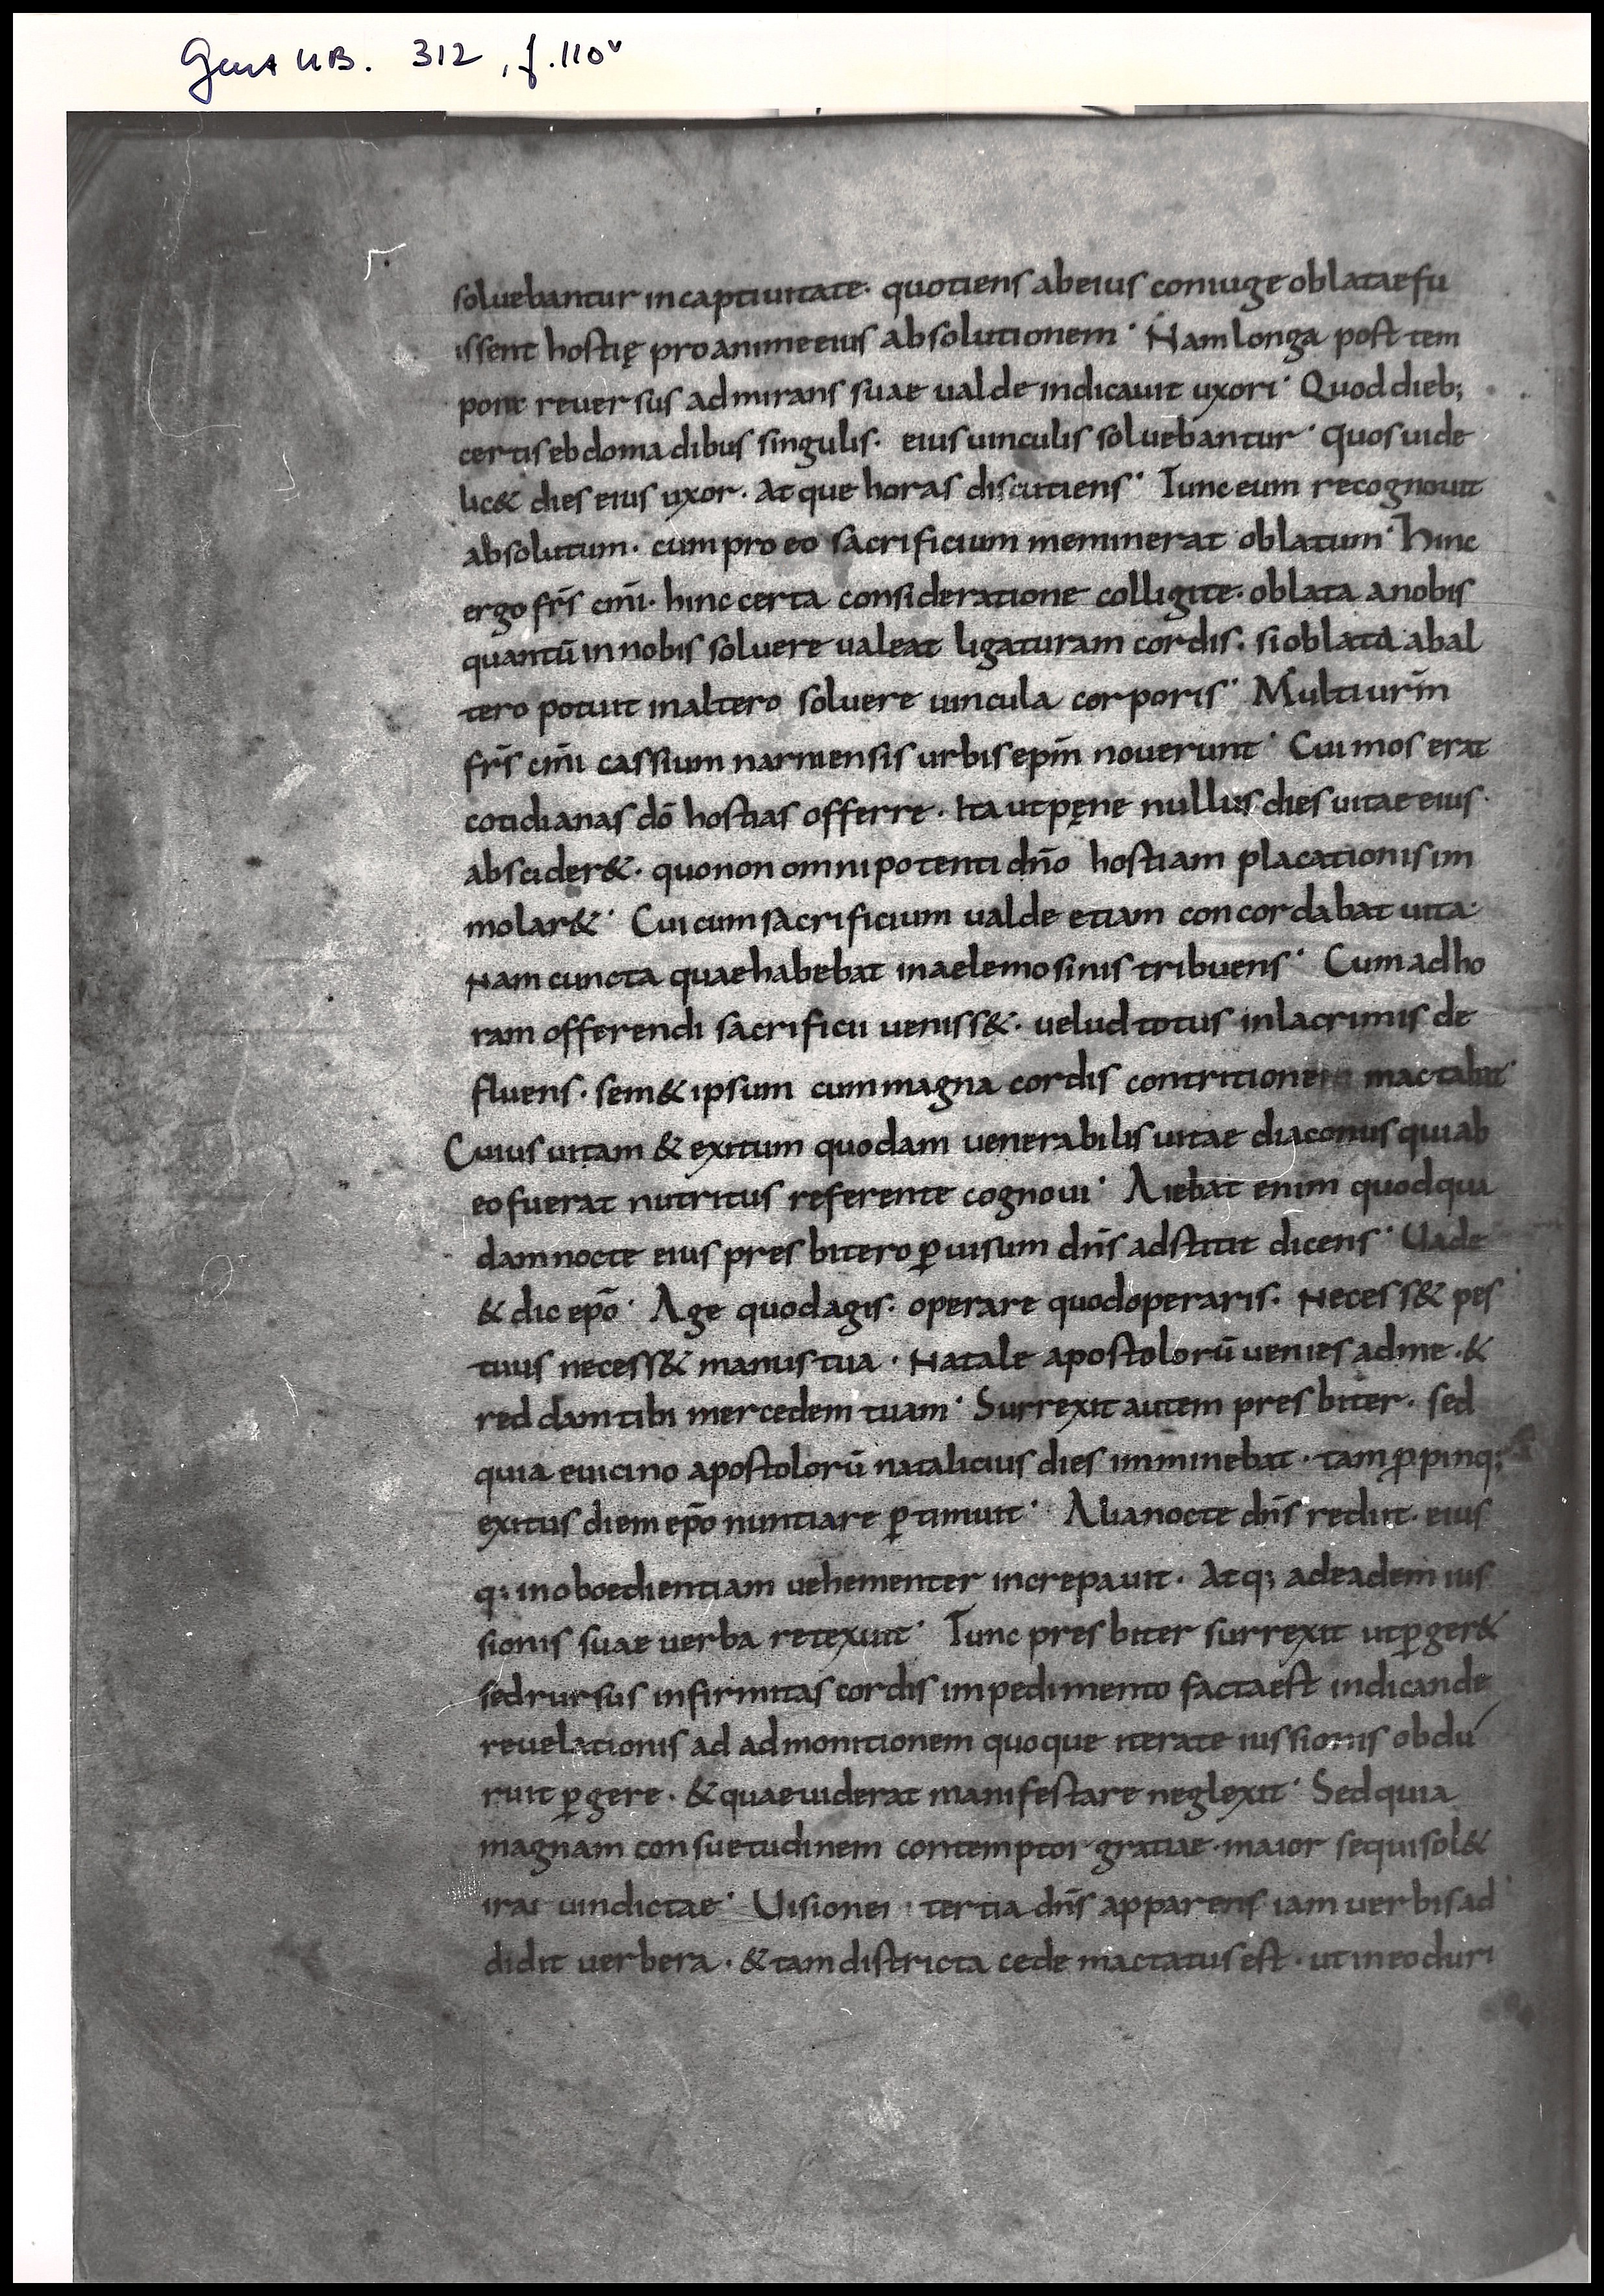 Gent UB. 312, f. 110v
soluebantur incaptiuitate· quotiens abeius coniuge oblataefu
issent hostię proanimeeius absolutionem· Nam longa post tem
pora reuersus admirans suae ualde indicauit uxori· Quod dieb;
certis ebdomadibus singulis· eius uinculis soluebantur· Quos uide
lic& dies eius uxor· Atque horas discutiens· Tunc eum recognouit
absolutum· cum pro eo sacrificium meminerat oblatum· Hinc
ergo fr̄s cm̄i· hinc certa consideratione colligite· oblata anobis
quantū in nobis soluere ualeat ligaturam cordis· si oblata abal
tero potuit inaltero soluere uincula corporis· Multi ur̄m
fr̄s cm̄i cassium narniensis urbis epm̄ nouerunt· Cui mos erat
cotidianas dō hostias offerre· Ita ut pęne nullus dies uitae eius·
abscider&· quo non omnipotenti dn̄o hostiam placationis im
molar&· Cui cum sacrificium ualde etiam concordabat uita·
Nam cuncta quae habebat inaelemosinis tribuens· Cum ad ho
ram offerendi sacrificii ueniss&· uelud totus inlacrimis de
fluens· sem& ipsum cum magna cordis contritionem mactabat·
Cuius uitam & exitum quodam uenerabilis uitae diaconus qui ab
eo fuerat nutritus referente cognoui· Aiebat enim quod qua
dam nocte eius presbitero p̱ uisum dn̄s adstitit dicens· Uade
& dic epō· Age quod agis· operare quod operaris· Necess& pes
tuus necess& manus tua· Natale apostolorū uenies ad me·&
reddam tibi mercedem tuam· Surrexit autem presbiter· sed
quia euicino apostolorū natalicius dies imminebat· tam ꝓpinq;
exitus diem epō nuntiare ꝑtimuit· Alia nocte dn̄s rediit· eius
q; inoboedientiam uehementer increpauit· Atq; ad eadem ius
sionis suae uerba retexuit· Tunc presbiter surrexit ut ꝑger&
sed rursus infirmitas cordis impedimento facta est indicande
reuelationis ad admonitionem quoque iterate iussionis obdu
ruit ꝑgere· & quae uiderat manifestare neglexit· Sed quia
magnam consuetudinem contemptor gratiae· maior sequi sol&
irae uindictae· Uisione tertia dn̄s apparens iam uerbis ad
didit uerbera· & tam districta cede mactatus est· ut in eo duri